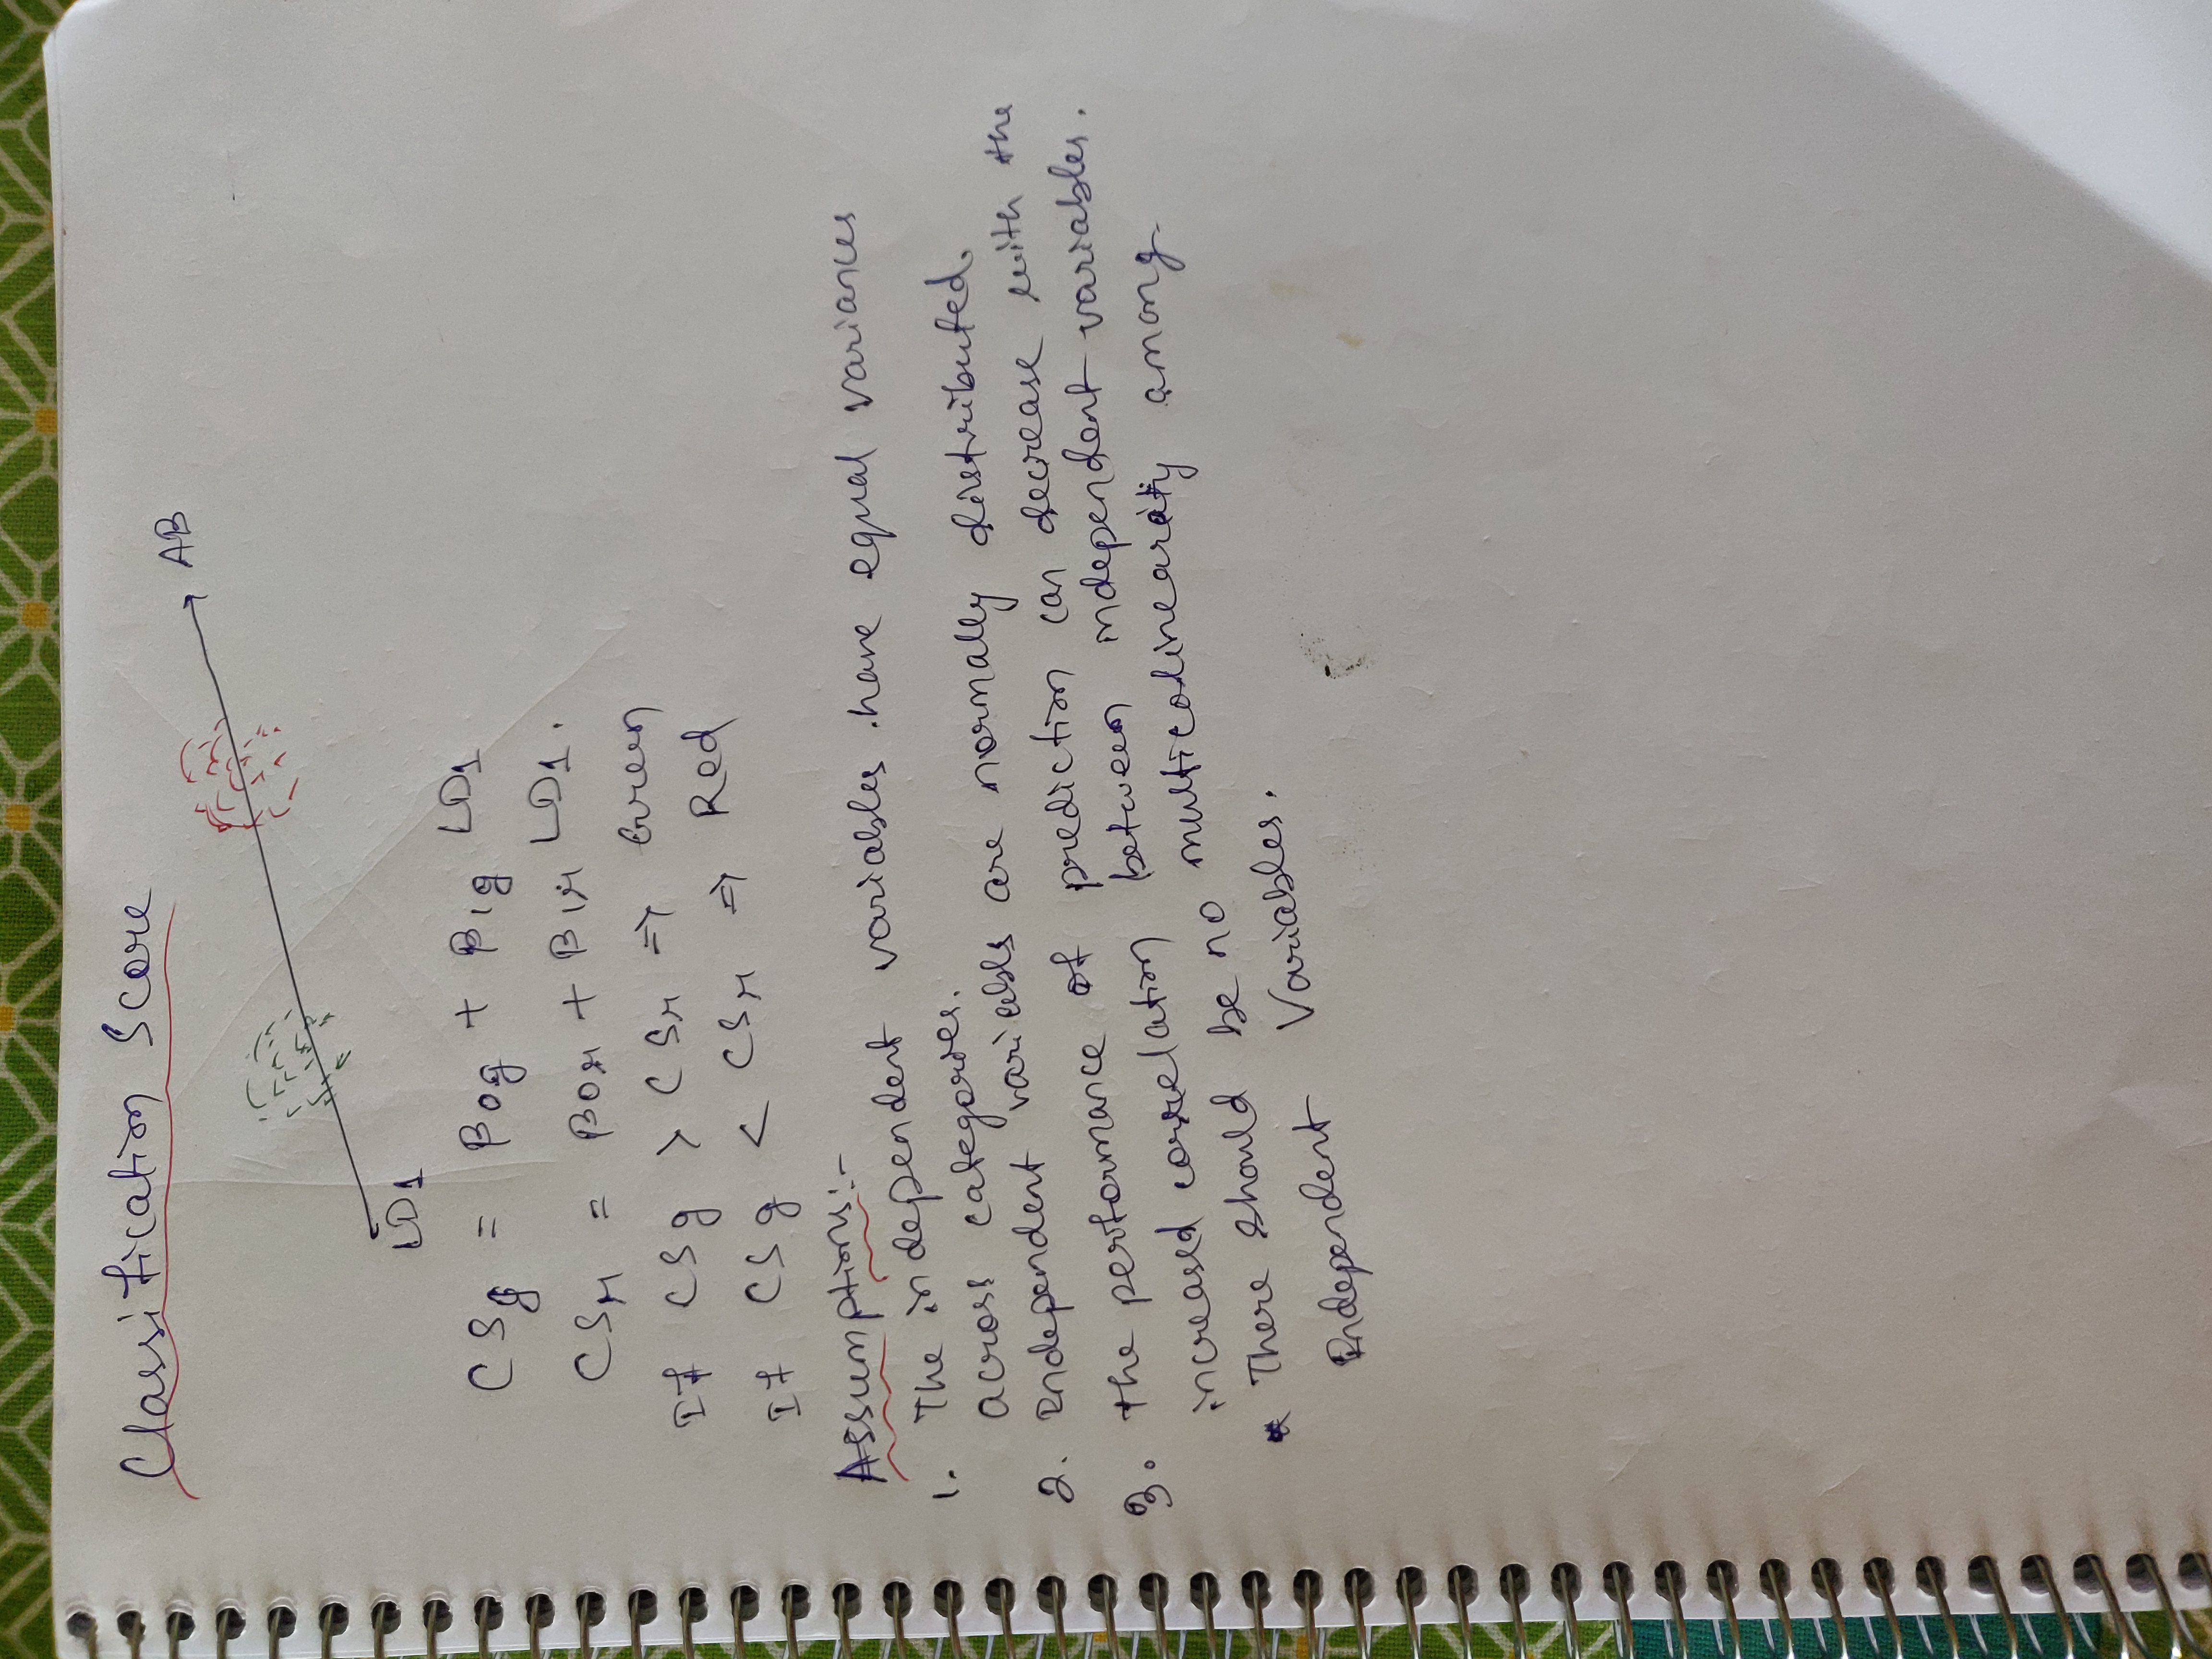 Classification Score
AB
LD1
CSg = β0g + β1g LD1
CSr = β0r + β1r LD1.
If CSg > CSr => Green
If CSg < CSr => Red
Assumptions:-
1. The independent variables have equal variances
across categories.
2. Independent variables are normally distributed.
3. The performance of prediction can decrease with the
increased correlation between independent variables.
* There should be no multicolinearity among
Independent Variables.